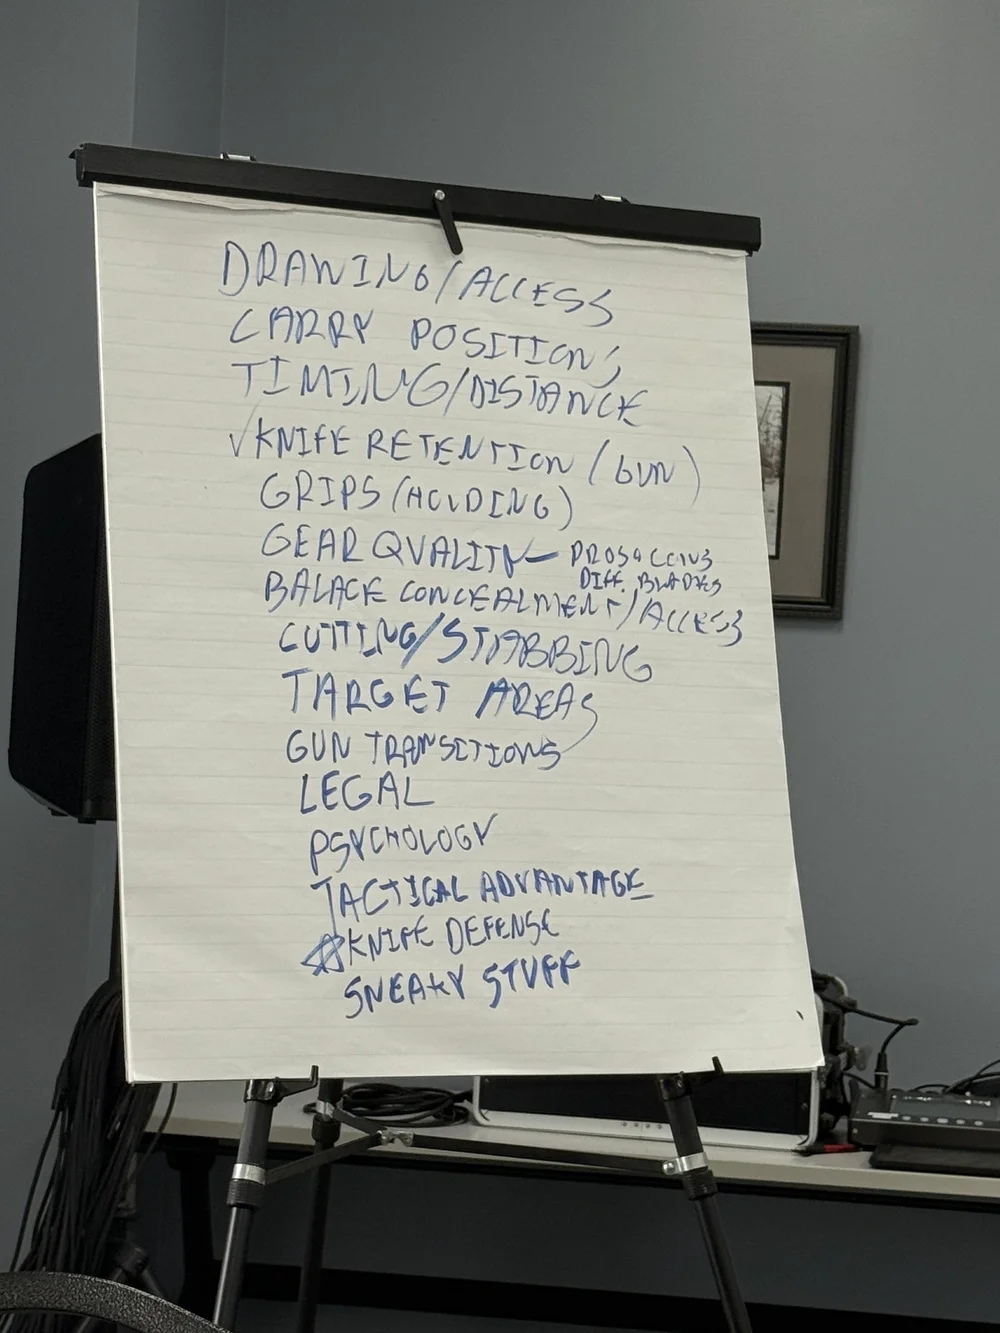 DRAWING/ACCESS
CARRY POSITIONS
TIMING/DISTANCE
√KNIFE RETENTION (GUN)
GRIPS (HOLDING)
GEAR QUALITY — PROS & CONS
DIFF. BLADES
BALACE CONCEALMENT/ACCESS
CUTTING/STABBING
TARGET AREAS
GUN TRANSITIONS
LEGAL
PSYCHOLOGY
TACTICAL ADVANTAGE
☆KNIFE DEFENSE
SNEAKY STUFF